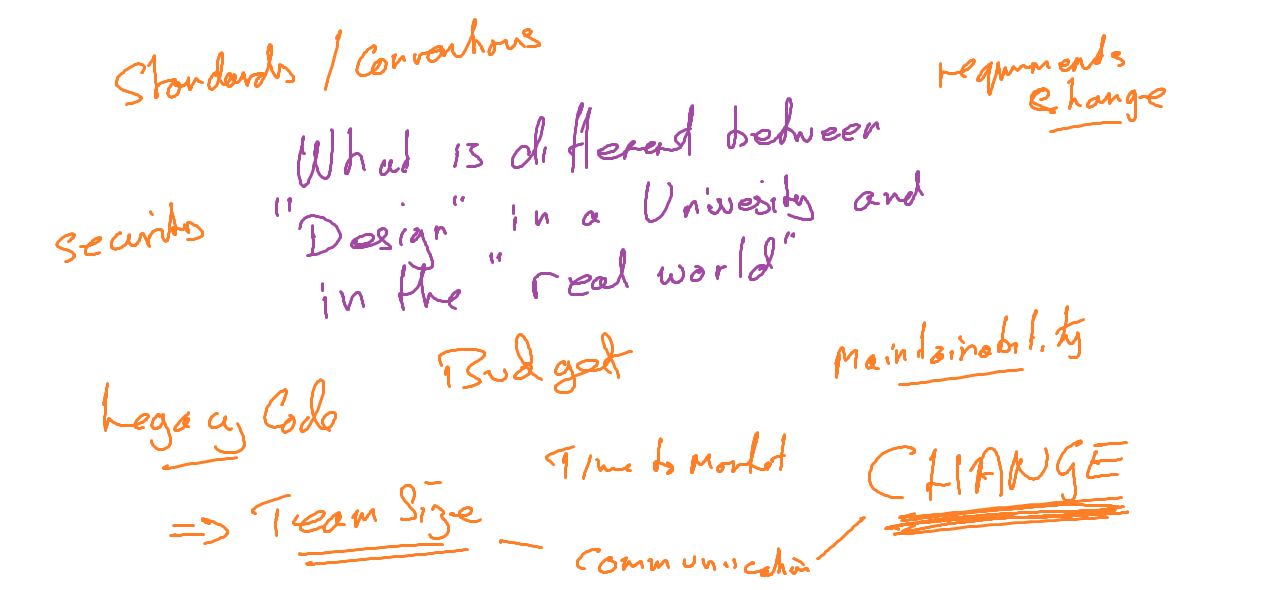 Standards / Conventions
requirments
change
What is different between
"Design" in a University and
in the "real world"
security
Budget
Maintainability
Legacy Code
Time to Market
CHANGE
=> Team Size
Communication